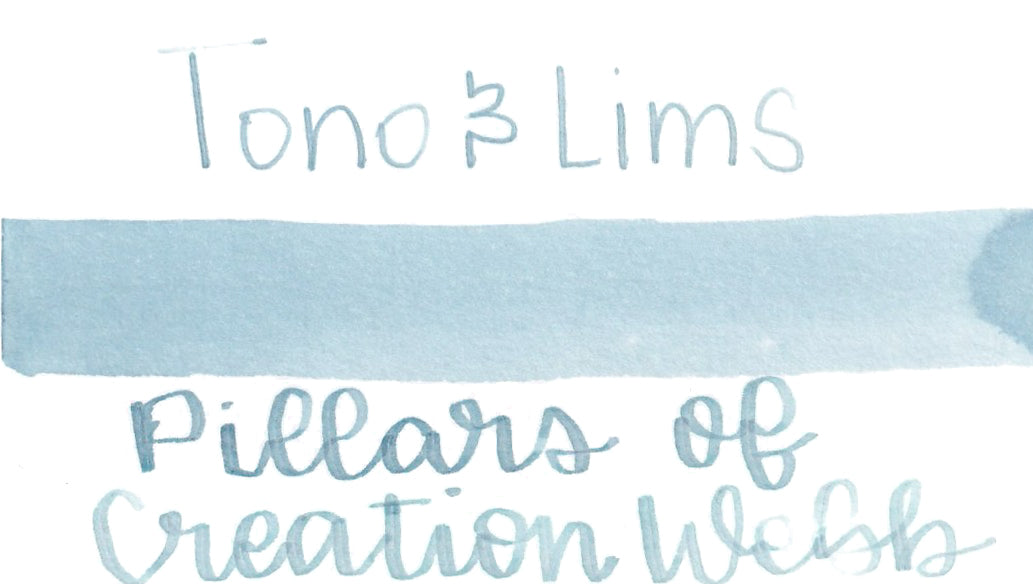 Tono & Lims
Pillars of
Creation Webb